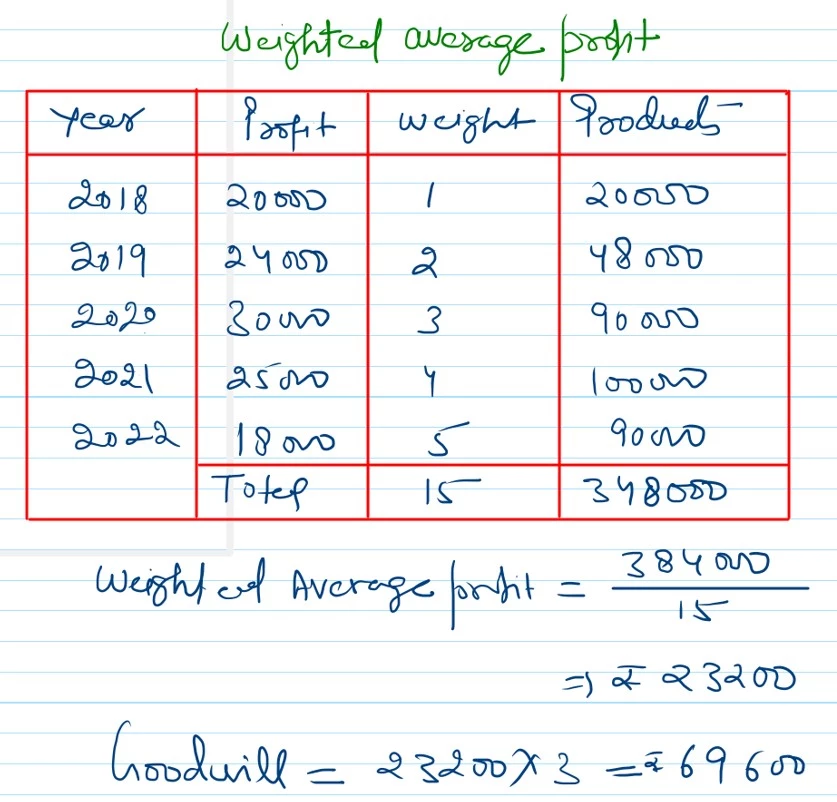 Weighted average profit
Year Profit Weight Products
2018 20000 1 20000
2019 24000 2 48000
2020 30000 3 90000
2021 25000 4 100000
2022 18000 5 90000
Total 15 348000
Weighted Average profit = 384000
15
=) ₹ 23200
Goodwill = 23200 X 3 = ₹ 69600